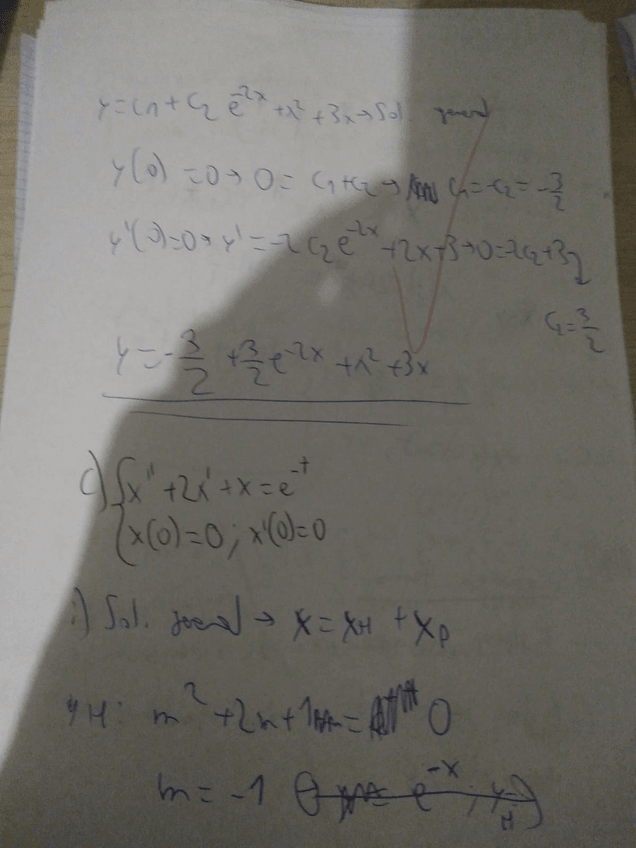 y = C1 + C2 e^-2x + x² + 3x → Sol. general
y(0) = 0 → 0 = C1 + C2 → C1 = -C2 = -3/2
y'(0)=0 → y' = -2C2 e^-2x + 2x + 3 → 0 = -2C2 + 3
C2 = 3/2
y = -3/2 + 3/2 e^-2x + x² + 3x
c) { x'' + 2x' + x = e^-t
x(0) = 0 ; x'(0) = 0
i) Sol. general → x = xH + xp
yH: m² + 2m + 1 = 0
m = -1